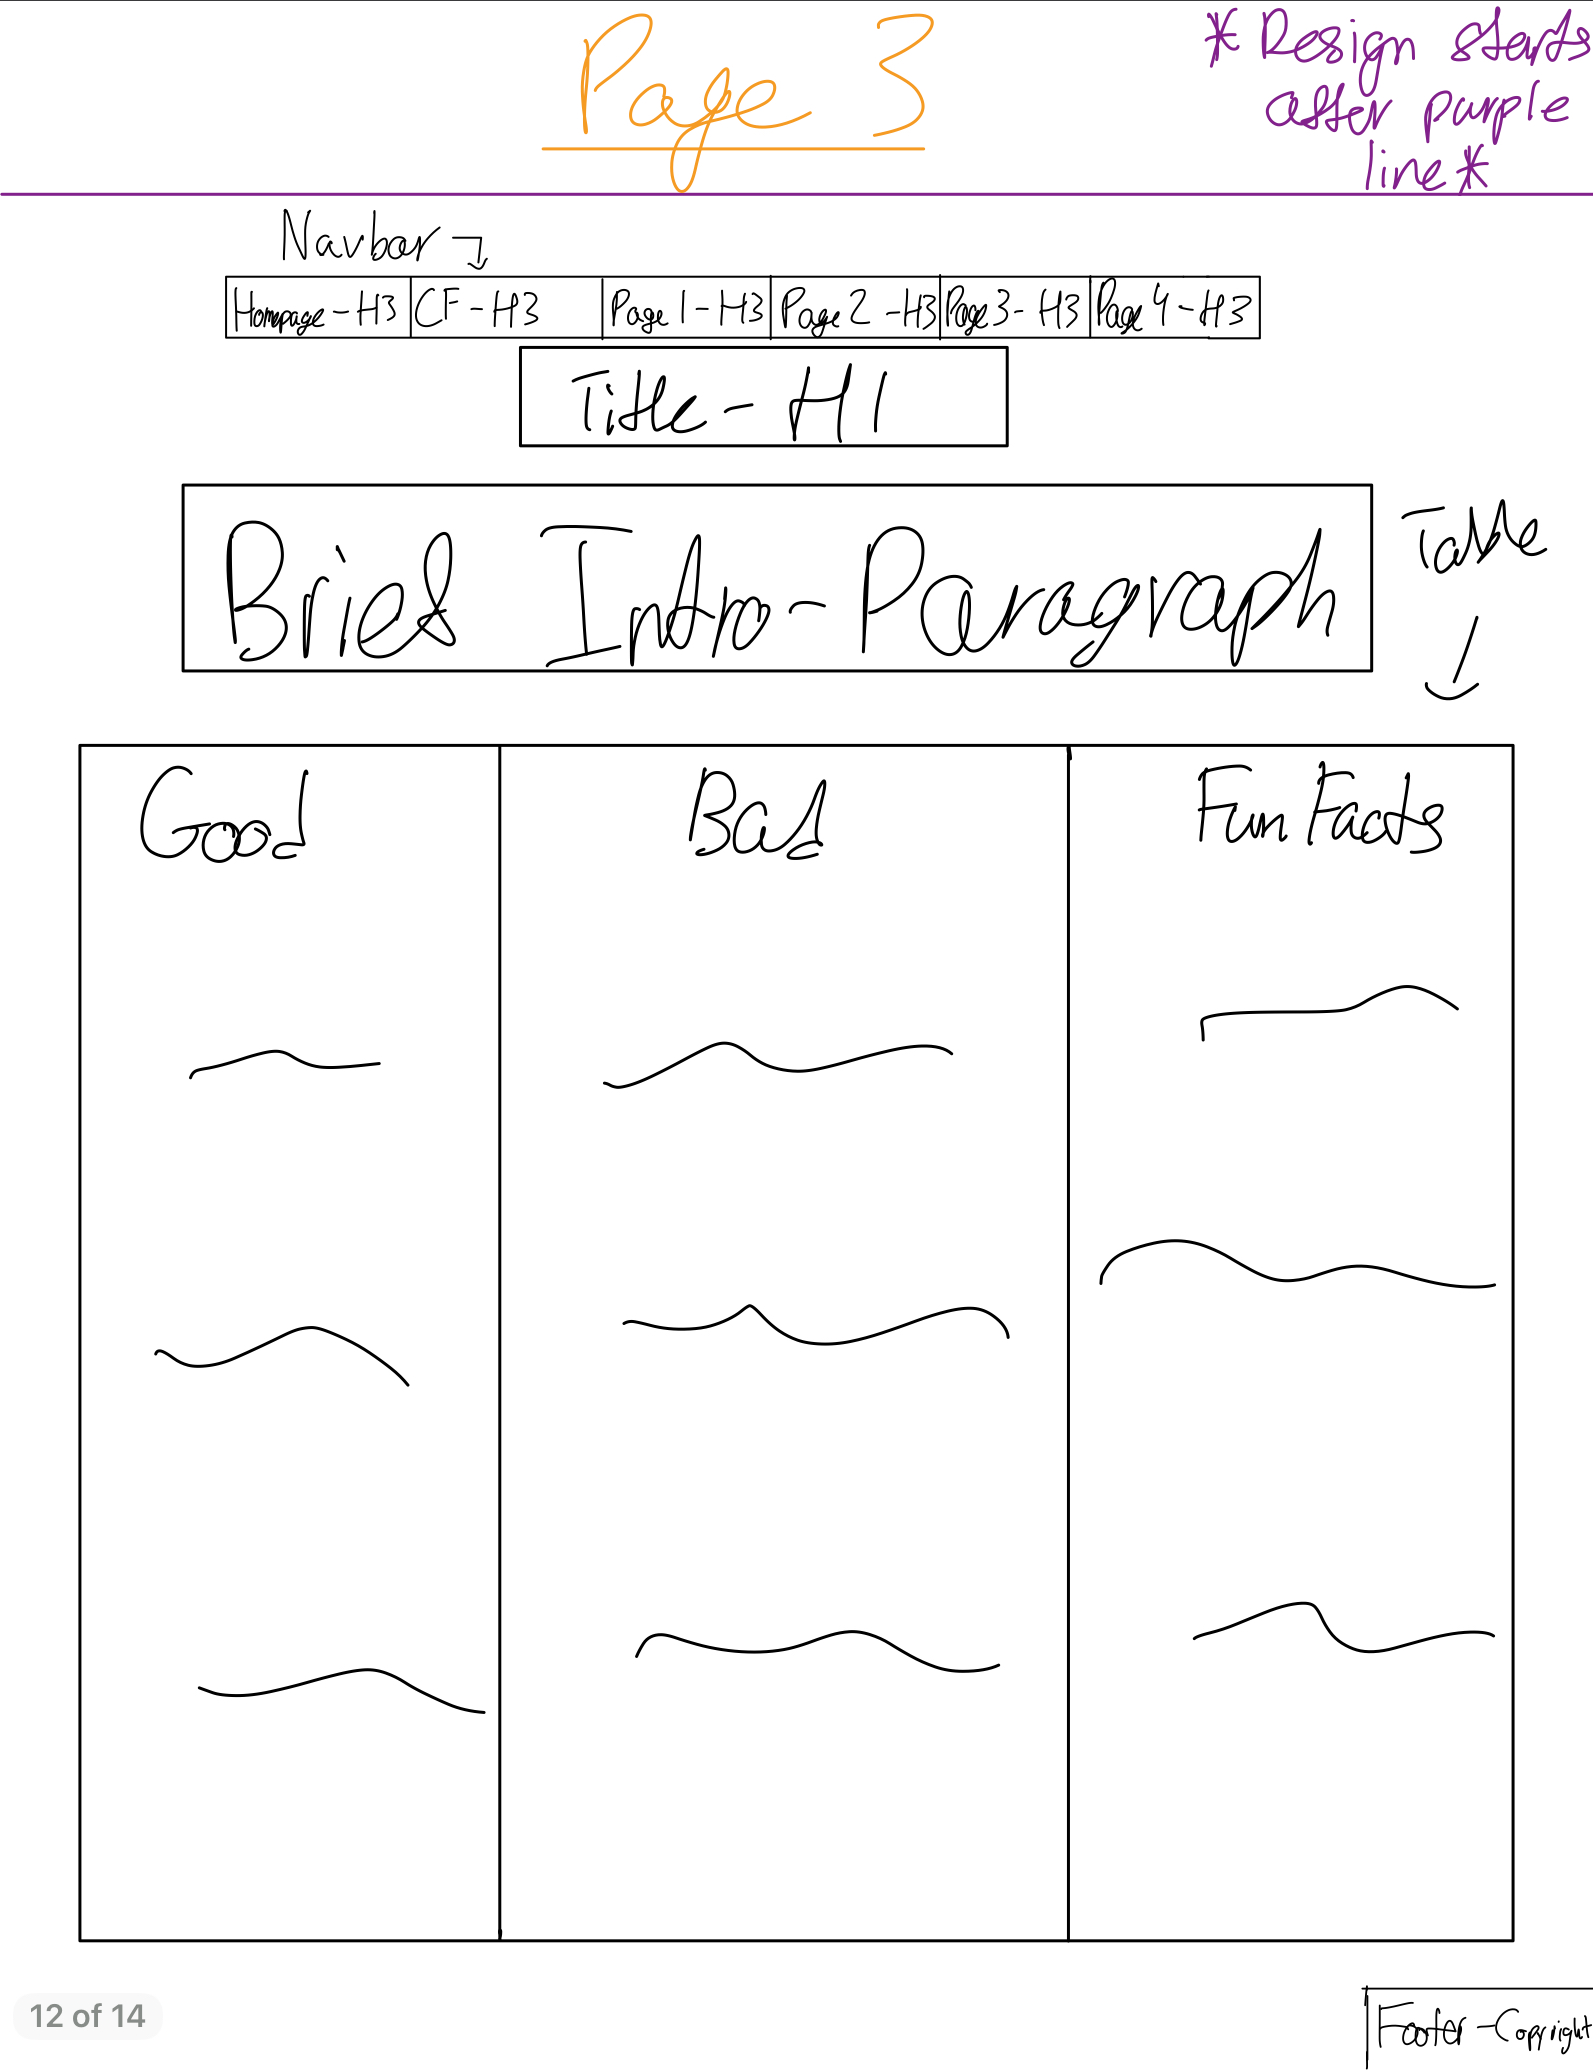 Page 3
*Design starts
after purple
line*
Navbar
Homepage-H3 CF-H3 Page 1-H3 Page 2-H3 Page 3-H3 Page 4-H3
Title-H1
Brief Intro-Paragraph
Table
Good Bad Fun Facts
12 of 14
Footer-Copyright